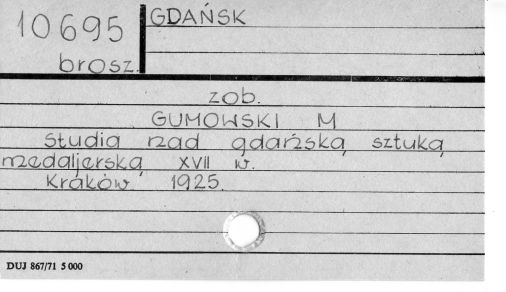 10695
brosz.
GDAŃSK
zob.
GUMOWSKI M
Studia nad gdańską sztuką
medaljerską XVII w.
Kraków 1925.
DUJ 867/71 5 000